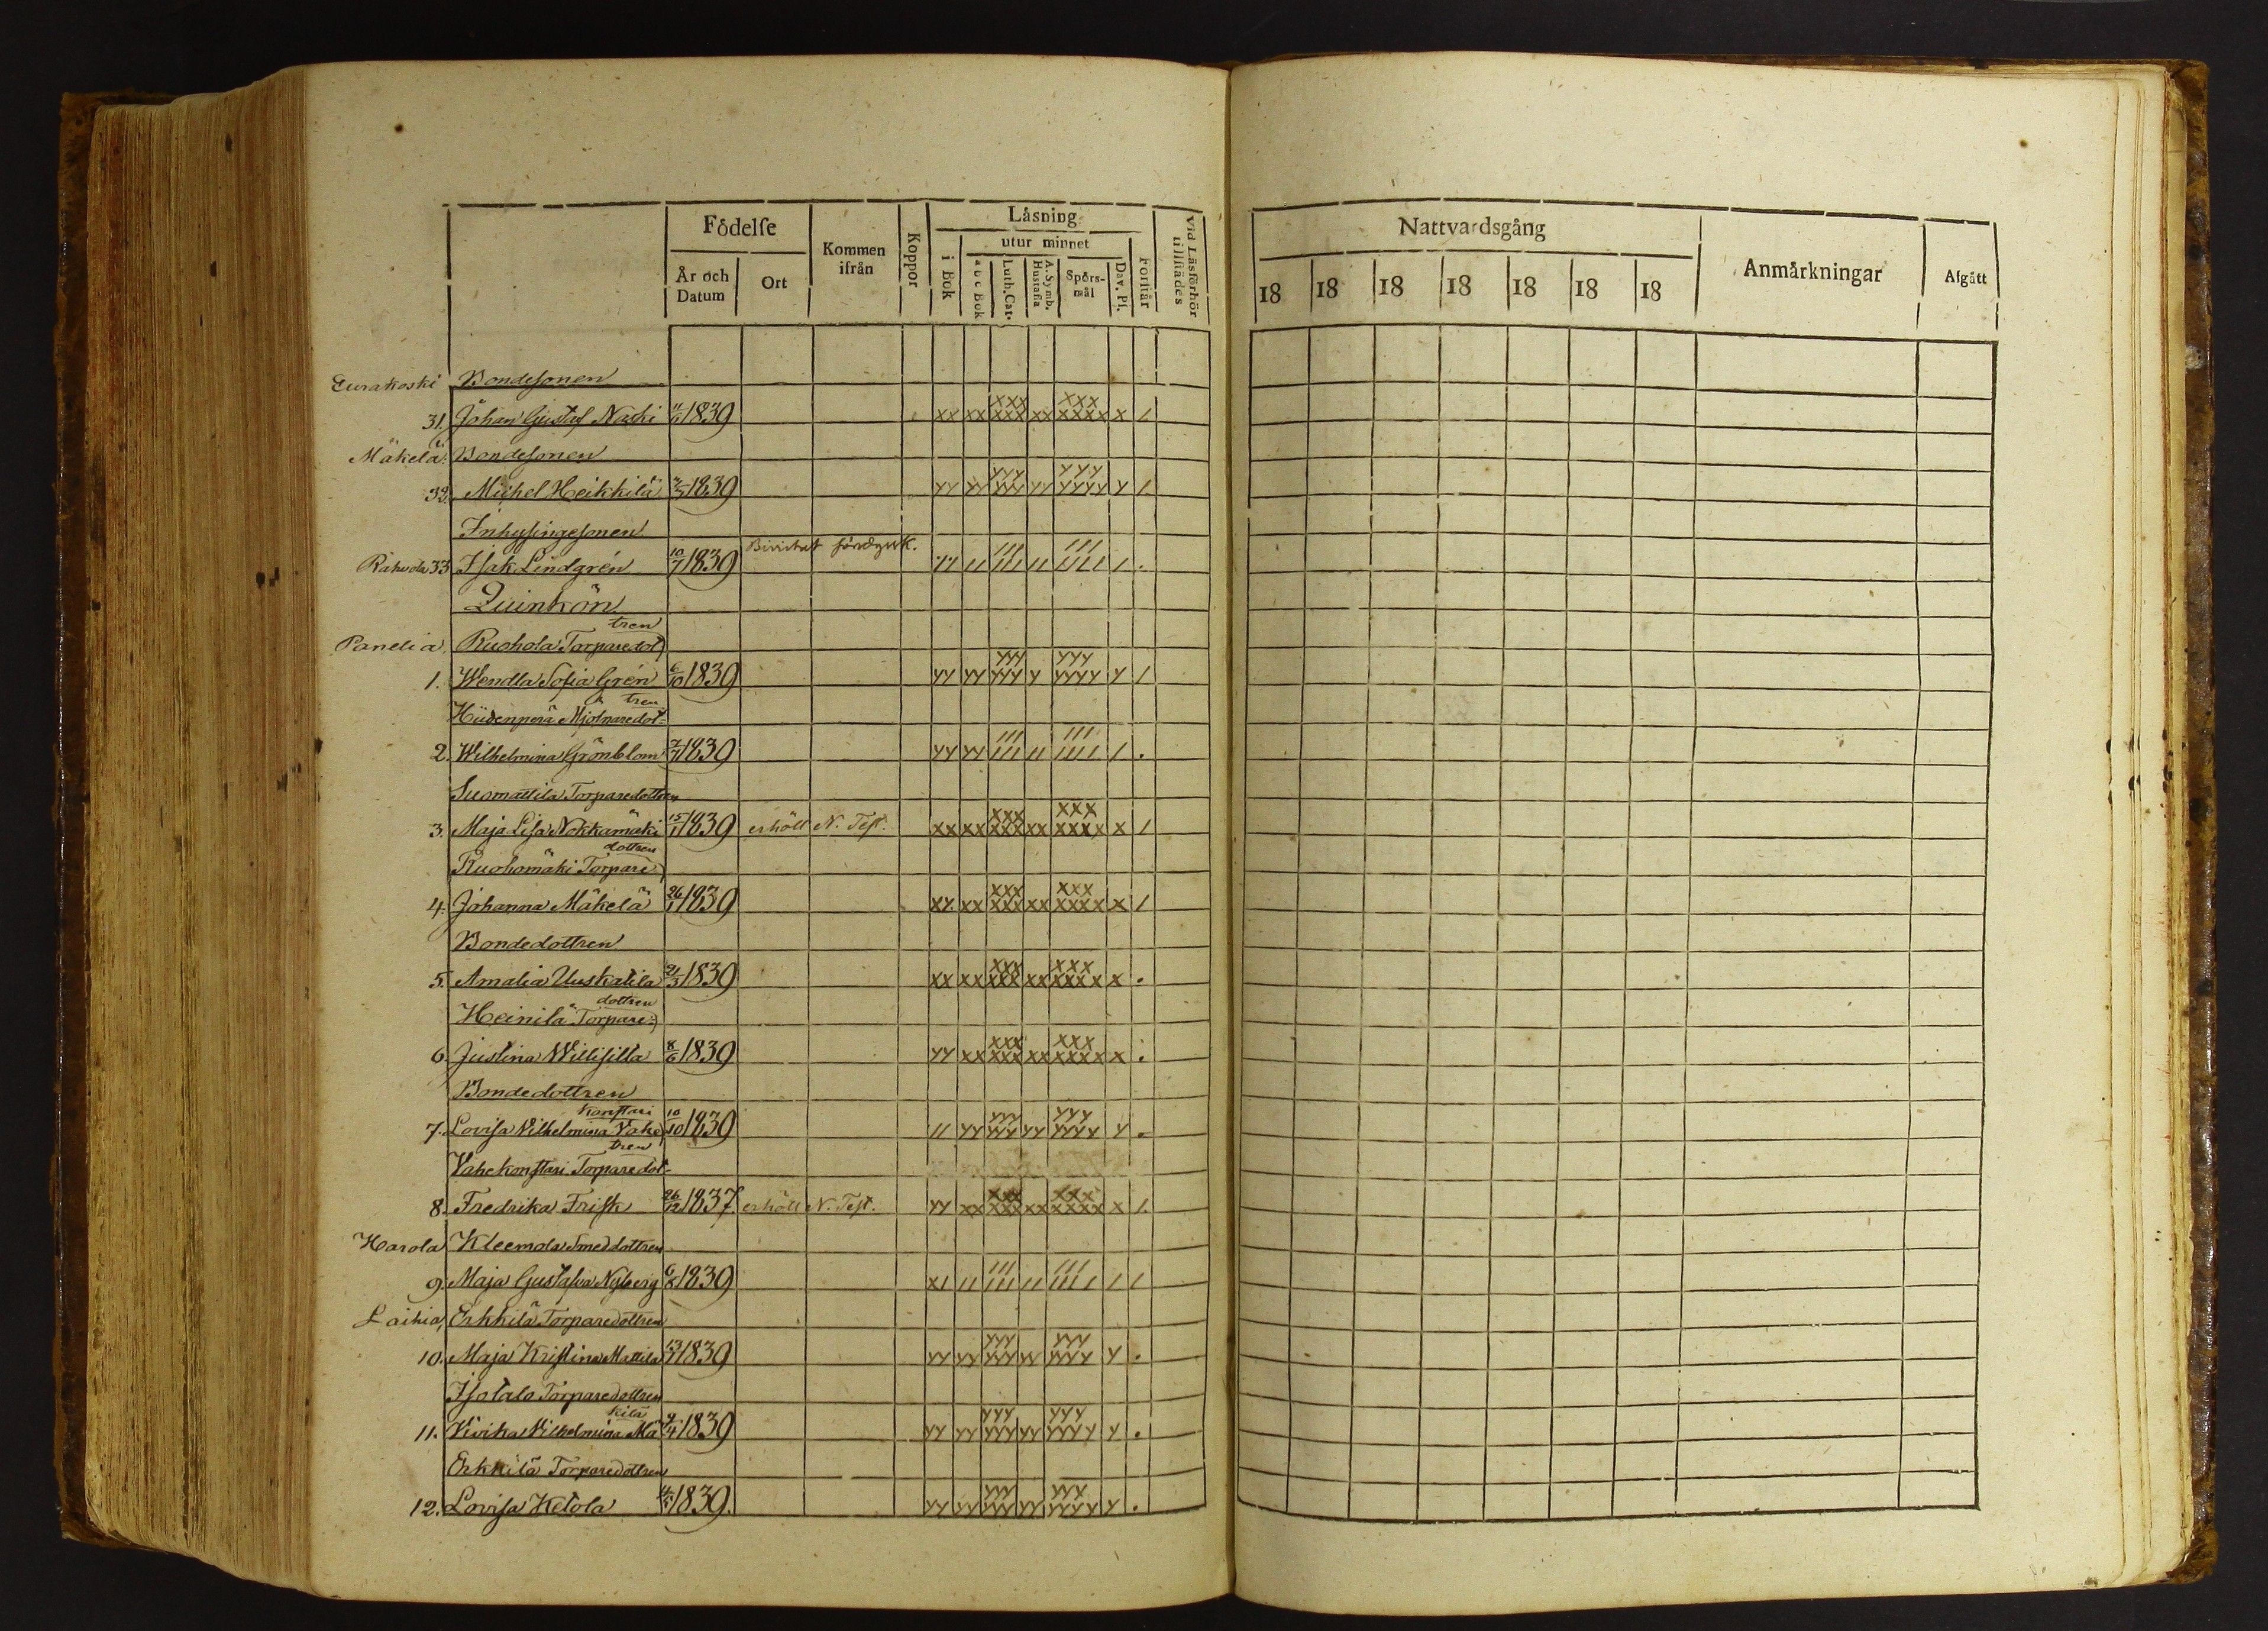 Födelse Kommen ifrån Koppor Läsning Vid Läsförhör tillstädes
utur minnet
År och Datum Ort i Bok a b c Bok Luth. Cat. A. Symb. Hustafla Spörsmål Dav. Ps. Förstår
Nattvardsgång Anmärkningar Afgått
18 18 18 18 18 18 18
Eurakoski Bondesonen
31. Johan Gustaf Naski 1839 xx xx xxx xxx xx xxx xxxx x /
Mäkelä Bondesonen
32. Michel Heikkilä 1839 yy yy yyy yyy yy yyy yyyy y /
Inhysingesonen
Rahvola 33 Isak Lindgrén 10/7 1839 yy // /// /// // /// //// / .
Quinkön
Panelia Ruohola Torparedottren
1. Wendla Sofia Grén 6/10 1839 yy yy yyy yyy y yyy yyyy y /
Hiidenperä Mjölnaredottren
2. Wilhelmina Grönblom 1839 yy yy /// /// // /// //// / .
Suomattila Torparedottren
3. Maja Lisa Nokkamäki 15/1 1839 erhöll N. Test. xx xx xxx xxx xx xxx xxxx x /
Ruohomäki Torparedottren
4. Johanna Mäkelä 26/1 1839 xx xx xxx xxx xx xxx xxxx x /
Bondedottren
5. Amalia Uuskatila 21/3 1839 xx xx xxx xxx xx xxx xxxx x .
Heinilä Torparedottren
6. Justina Willisilla 8/6 1839 yy xx xxx xxx xx xxx xxxx x .
Bondedottren
7. Lovisa Vilhelmina Vahekonstari 10/10 1839 // yy yyy yyy yy yyy yyyy y .
Vahekonstari Torparedottren
8. Fredrika Frisk 26/12 1837 erhöll N. Test. yy xx xxx xxx xx xxx xxxx x /
Harola Kleemola Smeddottren
9. Maja Gustafva Nyberg 1839 x/ // /// /// // /// //// / /
Laihia Erkkilä Torparedottren
10. Maja Kristina Mattila 1839 yy yy yyy yyy yy yyy yyyy y .
Isotalo Torparedottren
11. Vivika Vilhelmina Mäkilä 1839 yy yy yyy yyy yy yyy yyyy y .
Erkkilä Torparedottren
12. Lovisa Ketola 1839. yy yy yyy yyy yy yyy yyyy y .